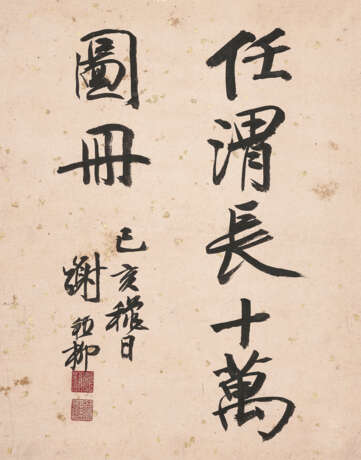 任渭長十萬
圖冊
己亥穐日
謝稚柳